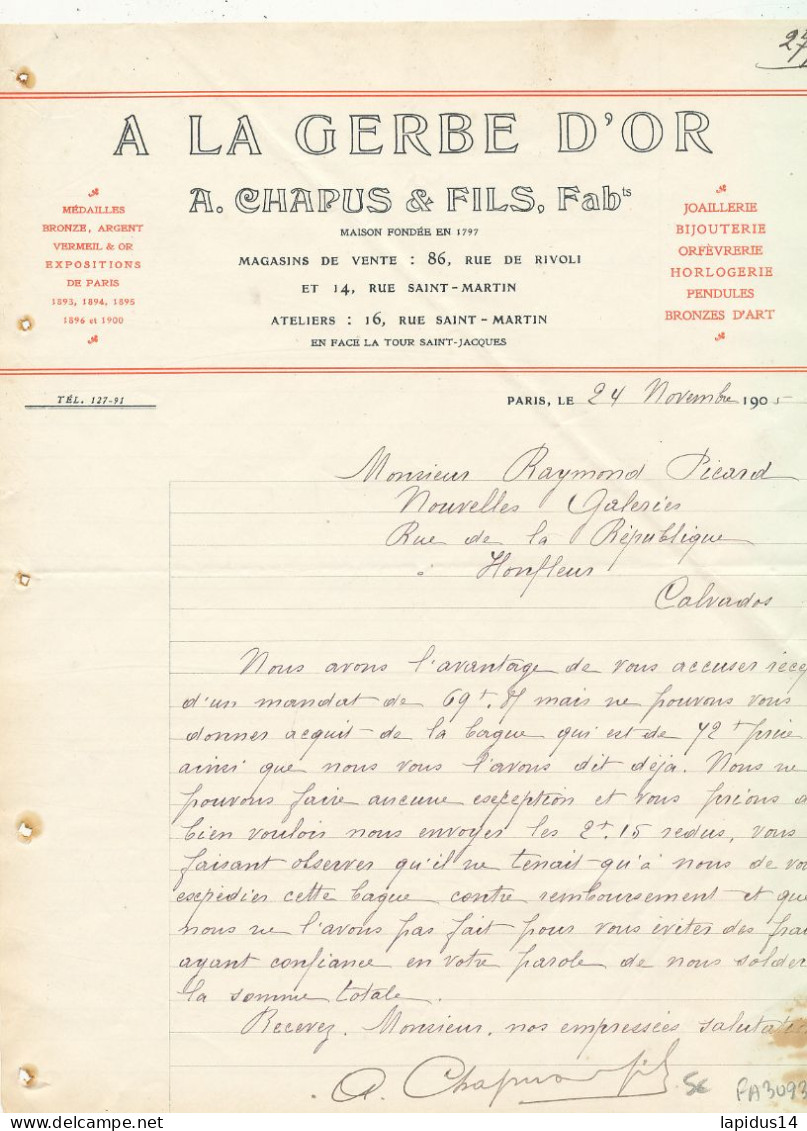 27
A LA GERBE D'OR
A. CHAPUS & FILS, Fabts
MAISON FONDÉE EN 1797
MAGASINS DE VENTE : 86, RUE DE RIVOLI
ET 14, RUE SAINT-MARTIN
ATELIERS : 16, RUE SAINT-MARTIN
EN FACE LA TOUR SAINT-JACQUES
MÉDAILLES
BRONZE, ARGENT
VERMEIL & OR
EXPOSITIONS
DE PARIS
1893, 1894, 1895
1896 et 1900
JOAILLERIE
BIJOUTERIE
ORFÈVRERIE
HORLOGERIE
PENDULES
BRONZES D'ART
TÉL. 127-91
PARIS, LE 24 Novembre 1905
Monsieur Raymond Picard
Nouvelles Galeries
Rue de la République
à Honfleur
Calvados
Nous avons l'avantage de vous accuser récep
d'un mandat de 69f. mais ne pouvons vous
donner acquit de la bague qui est de 72f prix
ainsi que nous vous l'avons dit déjà. Nous ne
pouvons faire aucune exception et vous prions d
bien vouloir nous envoyer les 2f.15 redus, vous
faisant observer qu'il ne tenait qu'à nous de vo
expédier cette bague contre remboursement et que
nous ne l'avons pas fait pour vous éviter des frai
ayant confiance en votre parole de nous solder
la somme totale.
Recevez, Monsieur, nos empressées salutati
A. Chapus & fils
5€ FA3093
lapidus14